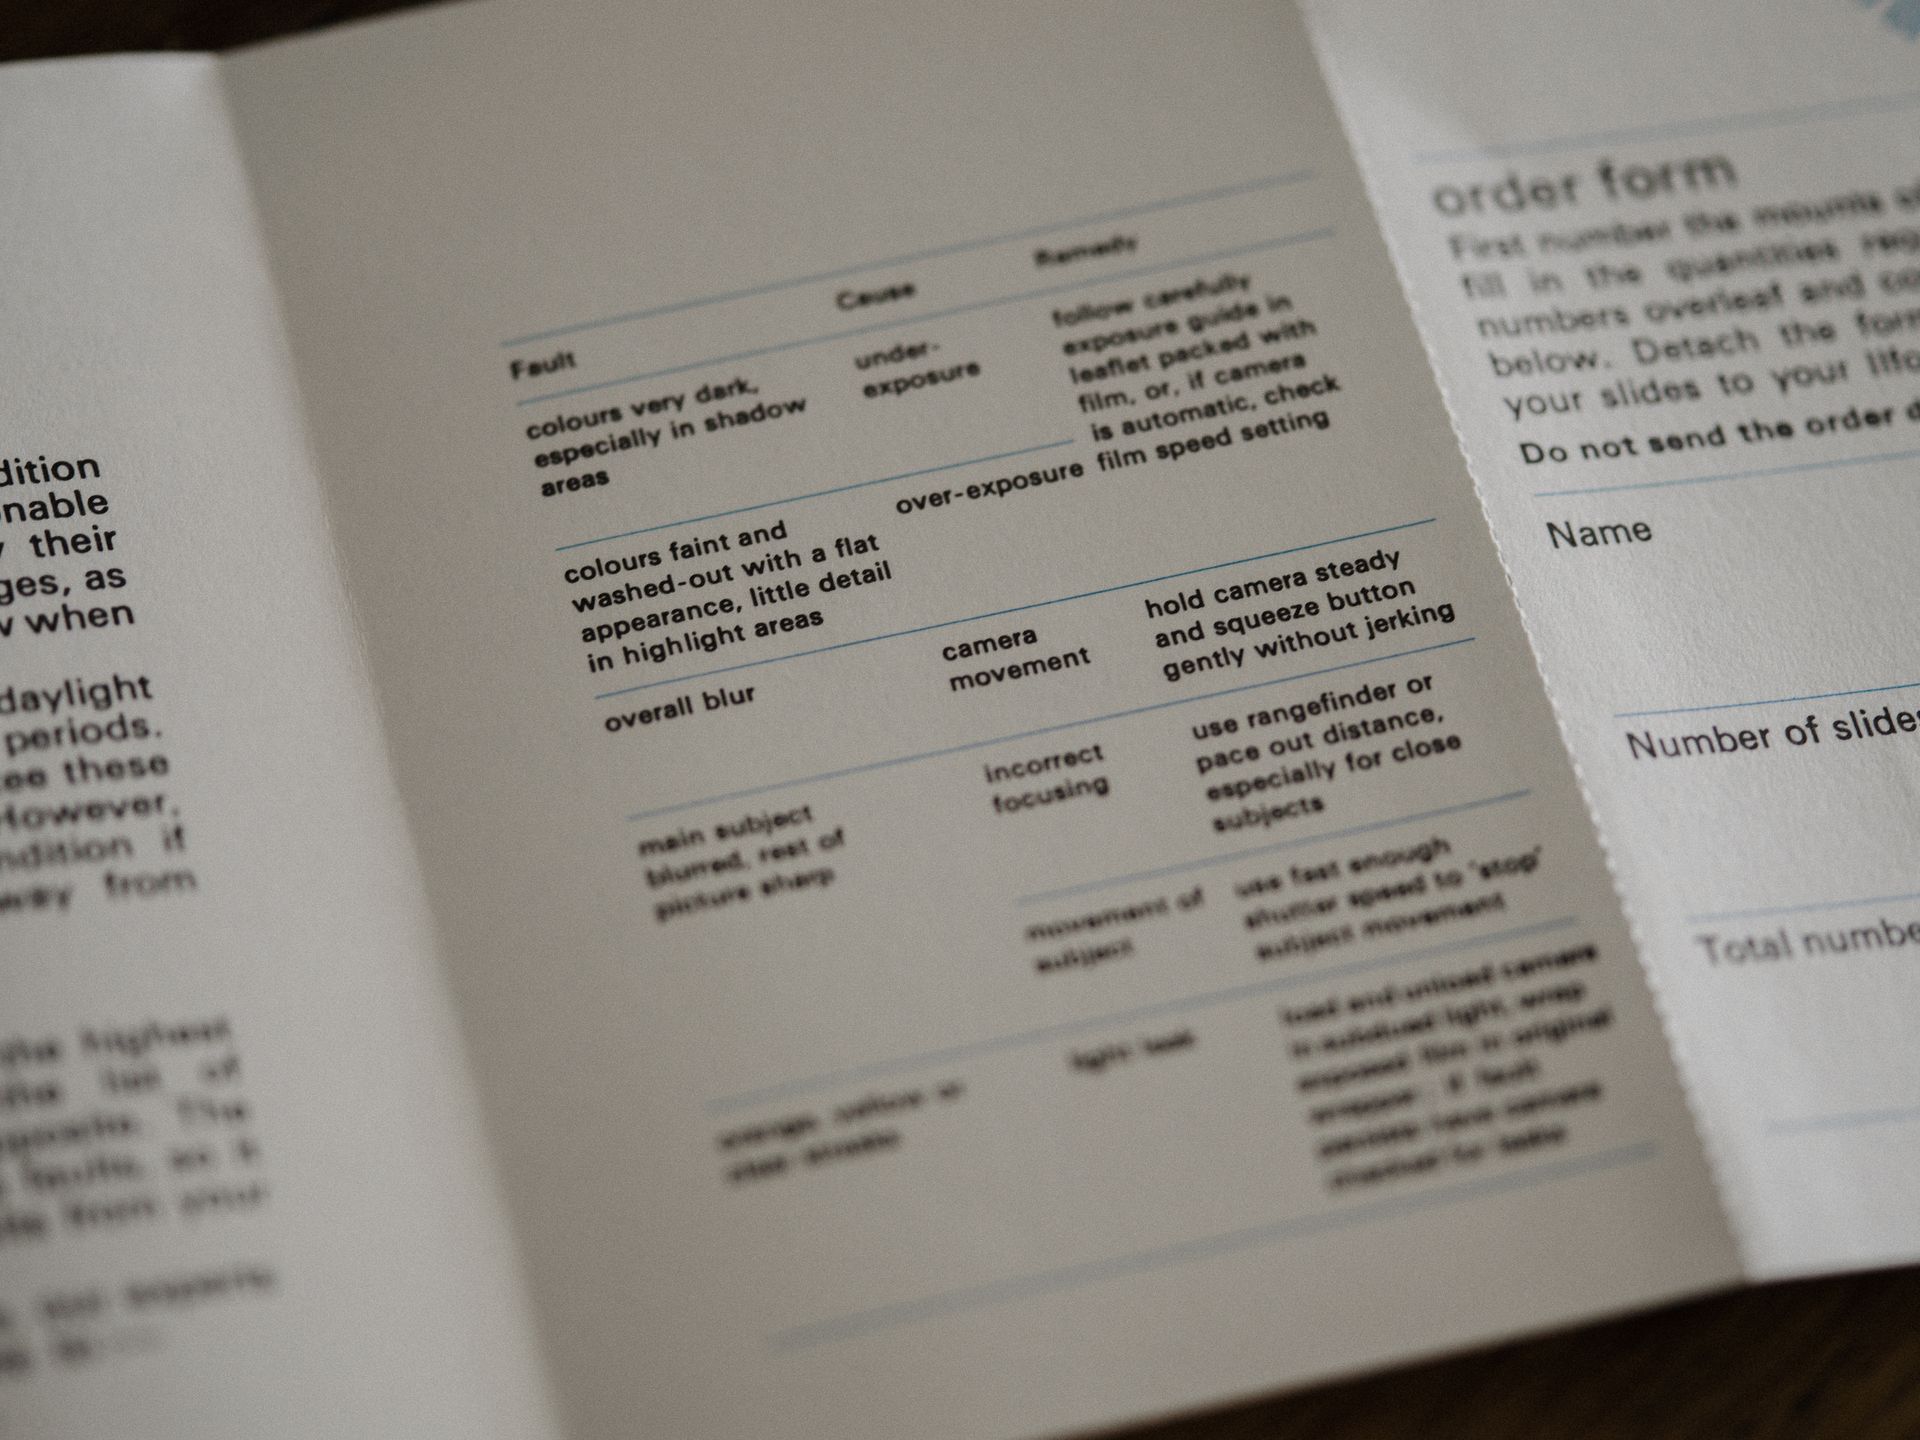 dition
nable
their
ges, as
when
daylight
periods.
these
However,
ndition if
away from
the highest
the list of
The
Fault
Cause
Remedy
colours very dark,
especially in shadow
areas
under-
exposure
follow carefully
exposure guide in
leaflet packed with
film, or, if camera
is automatic, check
film speed setting
colours faint and
washed-out with a flat
appearance, little detail
in highlight areas
over-exposure
overall blur
camera
movement
hold camera steady
and squeeze button
gently without jerking
main subject
blurred, rest of
picture sharp
incorrect
focusing
use rangefinder or
pace out distance,
especially for close
subjects
movement of
subject
use fast enough
shutter speed to 'stop'
subject movement
light leak
load and unload camera
in subdued light, wrap
exposed film in original
order form
First number the mounts
fill in the quantities
numbers overleaf and
below. Detach the form
your slides to your Ilfo
Do not send the order
Name
Number of slides
Total numbe